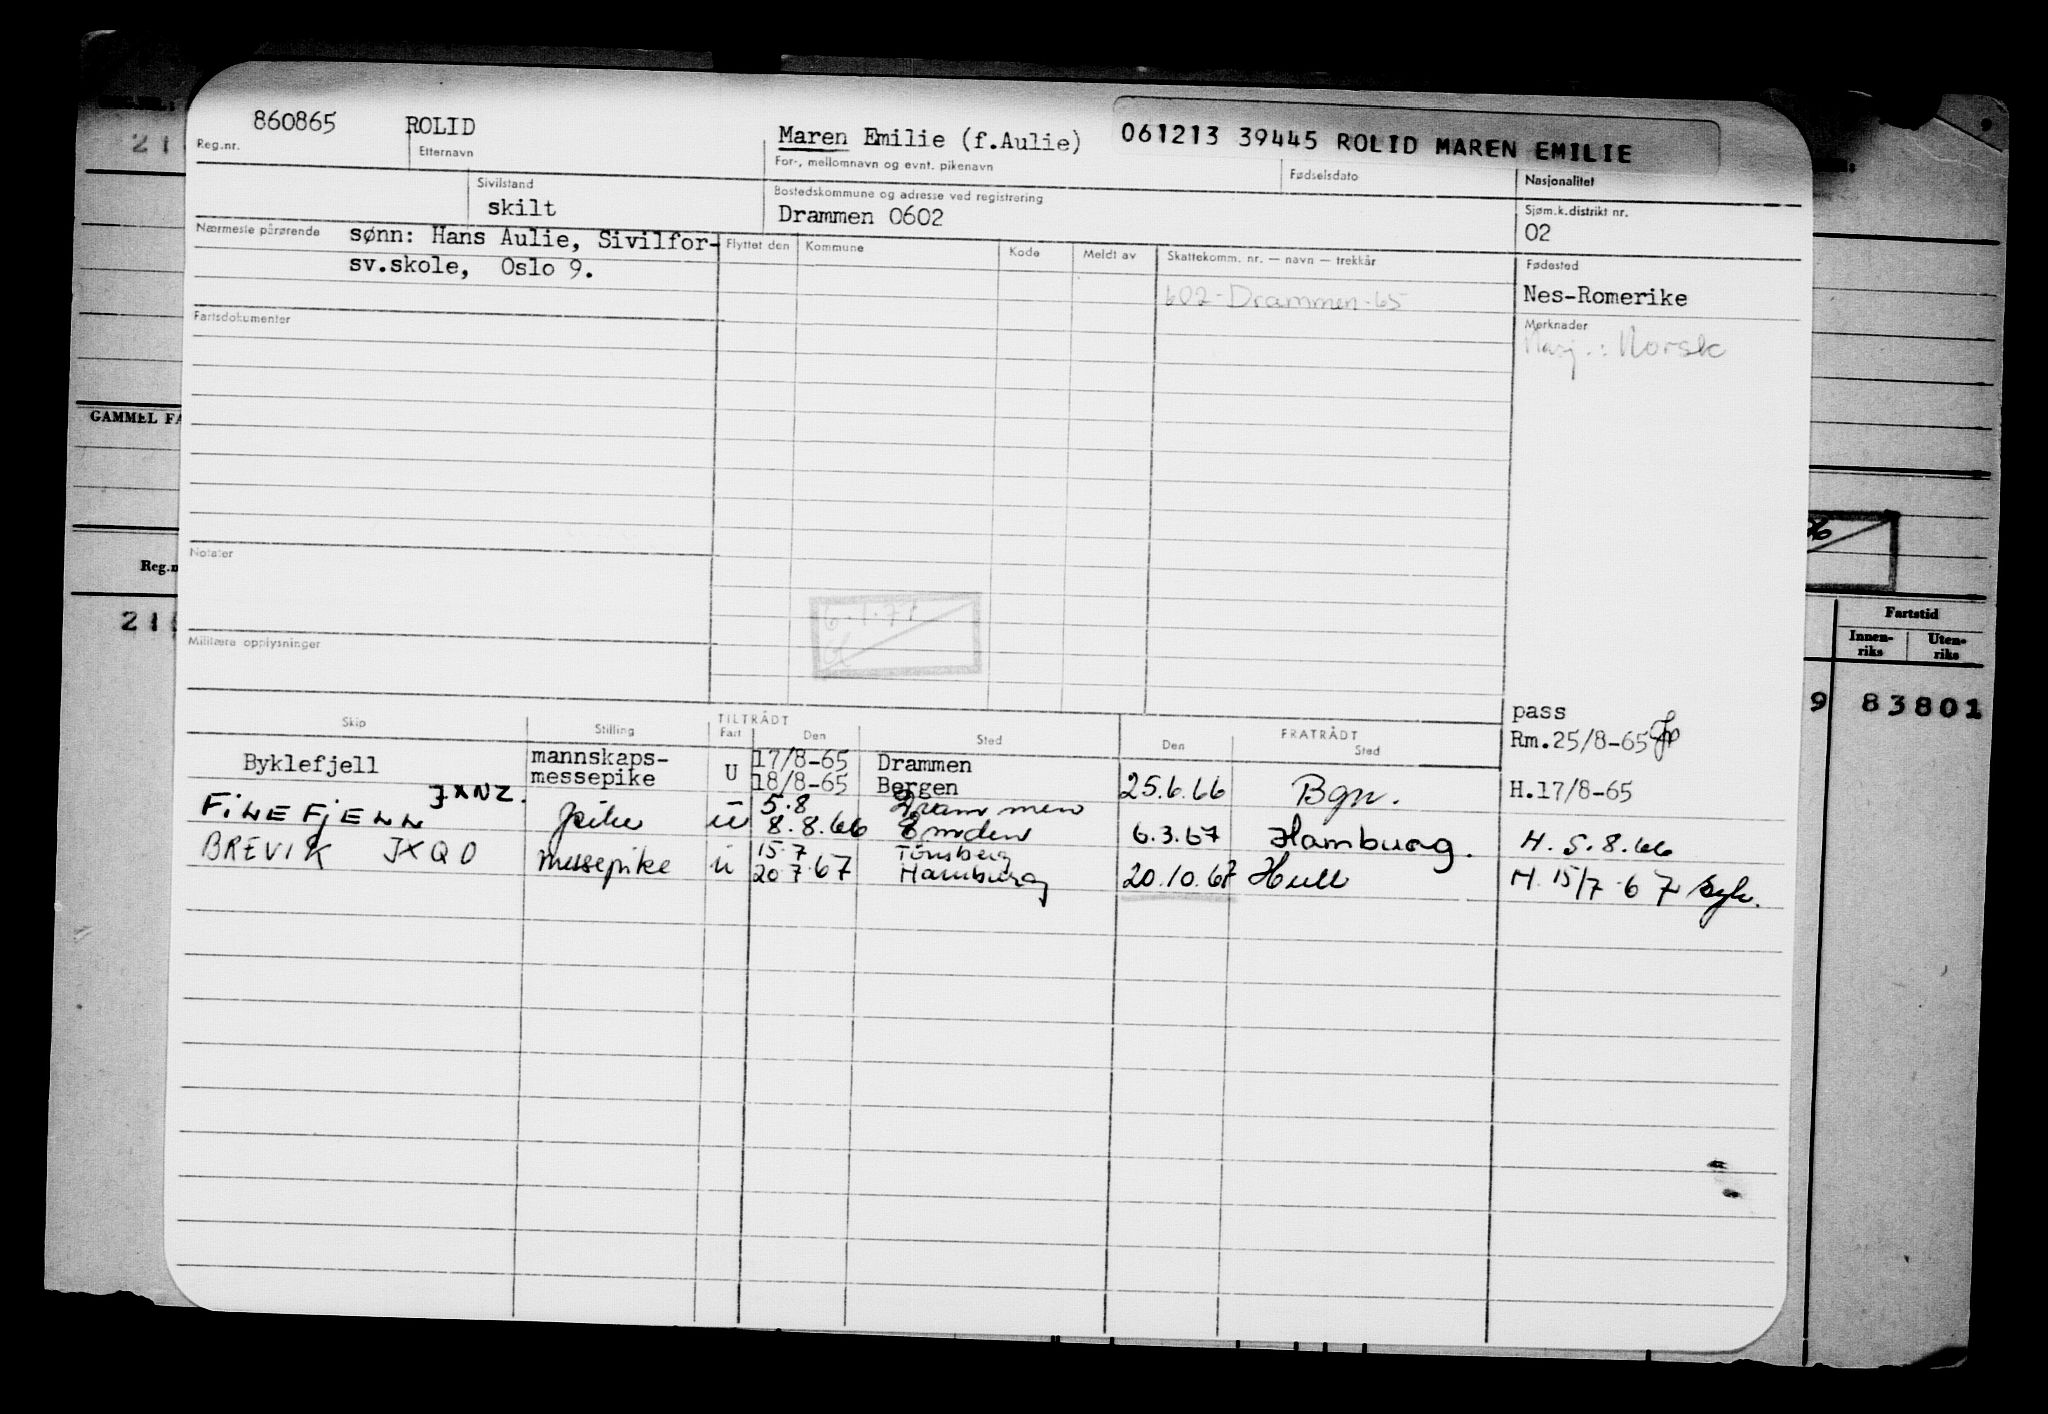 860865 ROLID Maren Emilie (f.Aulie) 061213 39445 ROLID MAREN EMILIE
Reg.nr. Etternavn For-, mellomnavn og evnt. pikenavn Fødselsdato Nasjonalitet
Sivilstand Bostedskommune og adresse ved registrering Sjøm.k.distrikt nr.
skilt Drammen 0602 02
Nærmeste pårørende sønn: Hans Aulie, Sivilfor- Flyttet den Kommune Kode Meldt av Skattekomm. nr. — navn — trekkår Fødested
sv.skole, Oslo 9.
602-Drammen-65 Nes-Romerike
Fartsdokumenter Merknader
Nasj.: Norsk
GAMMEL FA
Notater
Reg.n
21
6.1.71
Militære opplysninger
Fartstid
Innen-
riks
Uten-
riks
9 83801
pass
Skip Stilling TILTRÅDT Fart Den Sted FRATRÅDT Den Sted Rm.25/8-65
Byklefjell mannskaps- U 17/8-65 Drammen
messepike 18/8-65 Bergen 25.6.66 Bgn. H.17/8-65
FILEFJELL JXNZ. pike u 5.8 Drammen
8.8.66 Emden 6.3.67 Hamburg. H. 5.8.66
BREVIK JXQO messepike u 15.7 Tønsberg
20.7.67 Hamburg 20.10.67 Hull H. 15/7-67 syk.